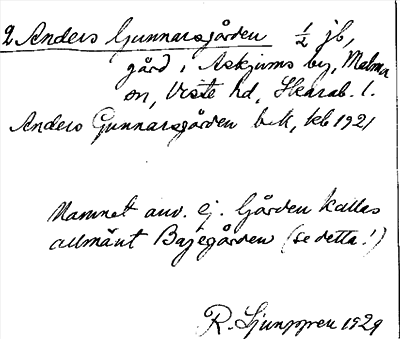 2 Anders Gunnarsgården 1/2 jb,
gård i Askjums by, Malma
sn, Viste hd, Skarab. l.
Anders Gunnarsgården b.k, kb 1921
Namnet anv. ej. Gården kallas
allmänt Bajegården (se detta!)
R. Ljunggren 1929